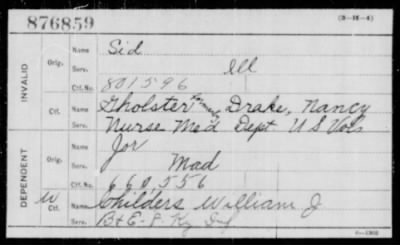 876859
(3-H-4)
INVALID
Orig. Name Sid
Serv. Ill
Ctf. No. 801596
Ctf. Name Gholster Drake, Nancy
Serv. Nurse Med Dept U S Vols
DEPENDENT
Orig. Name Jor
Serv. Mad
Ctf. No. 660556
W Ctf. Name Childers William J
Serv. B & E - 8 Ky Inf